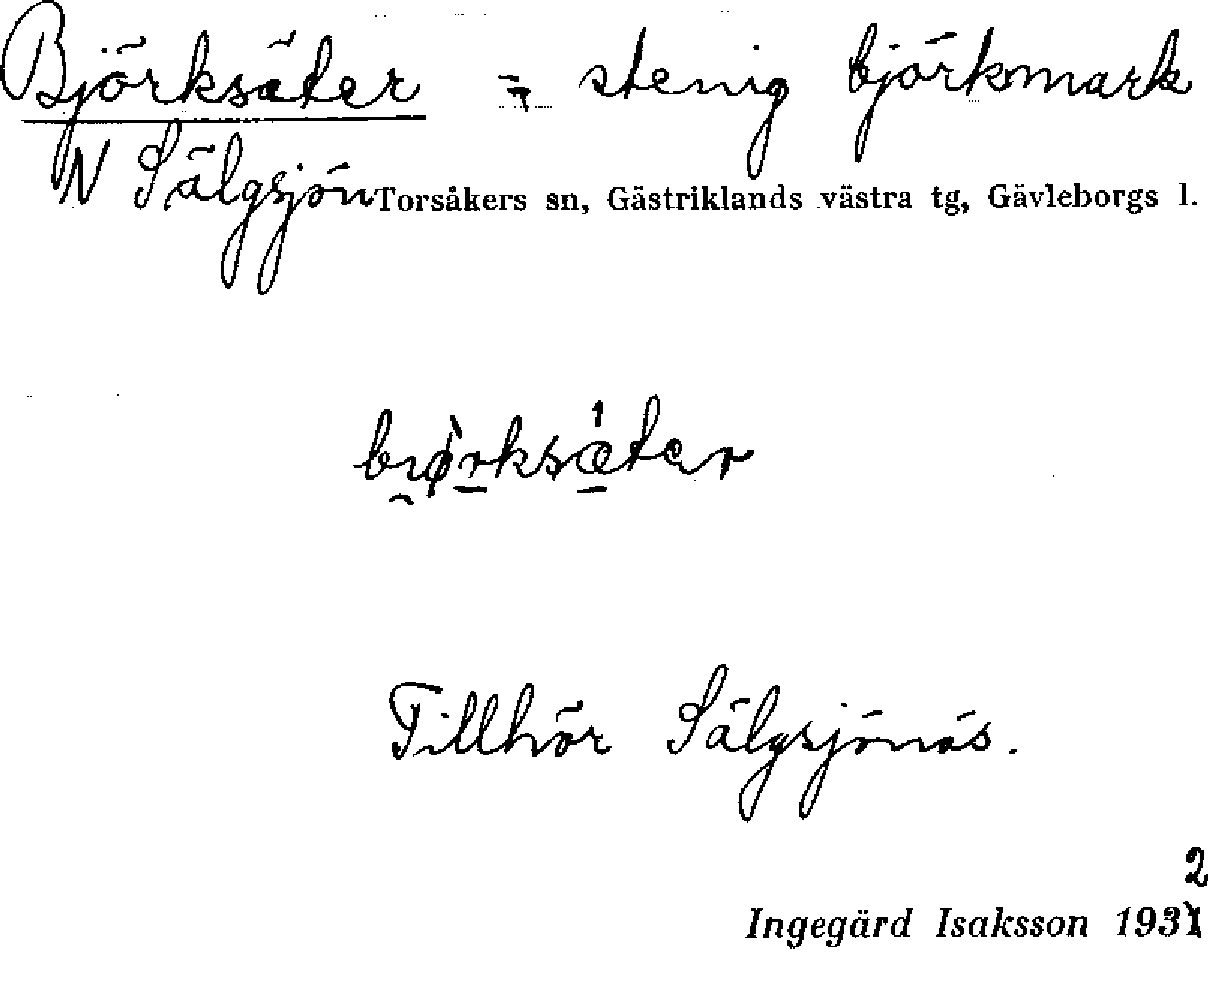 Björksäter = stenig björkmark
N Sälgsjön Torsåkers sn, Gästriklands västra tg, Gävleborgs l.
bi̯ø̀rksǽtər
Tillhör Sälgsjönäs.
2
Ingegärd Isaksson 1931